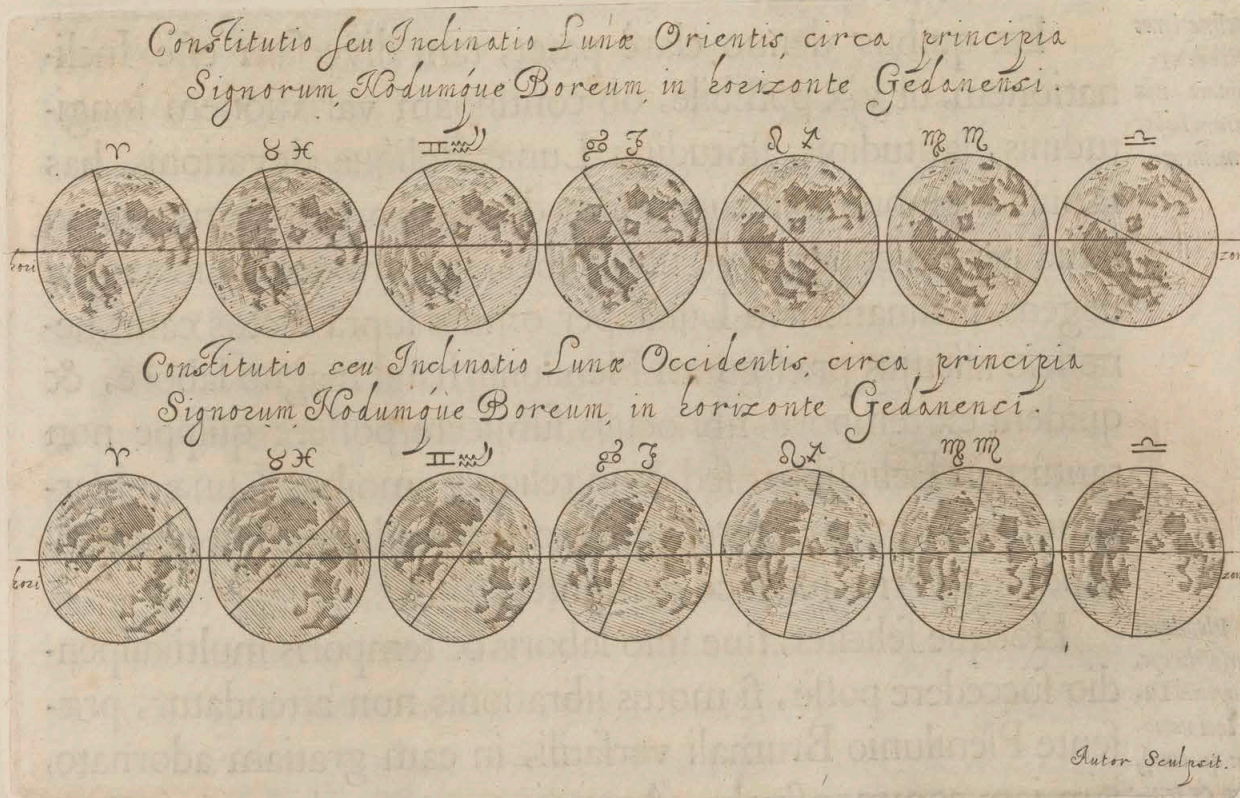 Constitutio seu Inclinatio Lunæ Orientis, circa principia
Signorum, Nodumque Boreum, in horizonte Gedanensi.
♈ ♉ ♓ ♊ ♒ ♋ ♑ ♌ ♐ ♍ ♏ ♎
hori zon
Constitutio seu Inclinatio Lunæ Occidentis, circa principia
Signorum, Nodumque Boreum, in horizonte Gedanenci.
♈ ♉ ♓ ♊ ♒ ♋ ♑ ♌ ♐ ♍ ♏ ♎
hori zon
Autor Sculpsit.